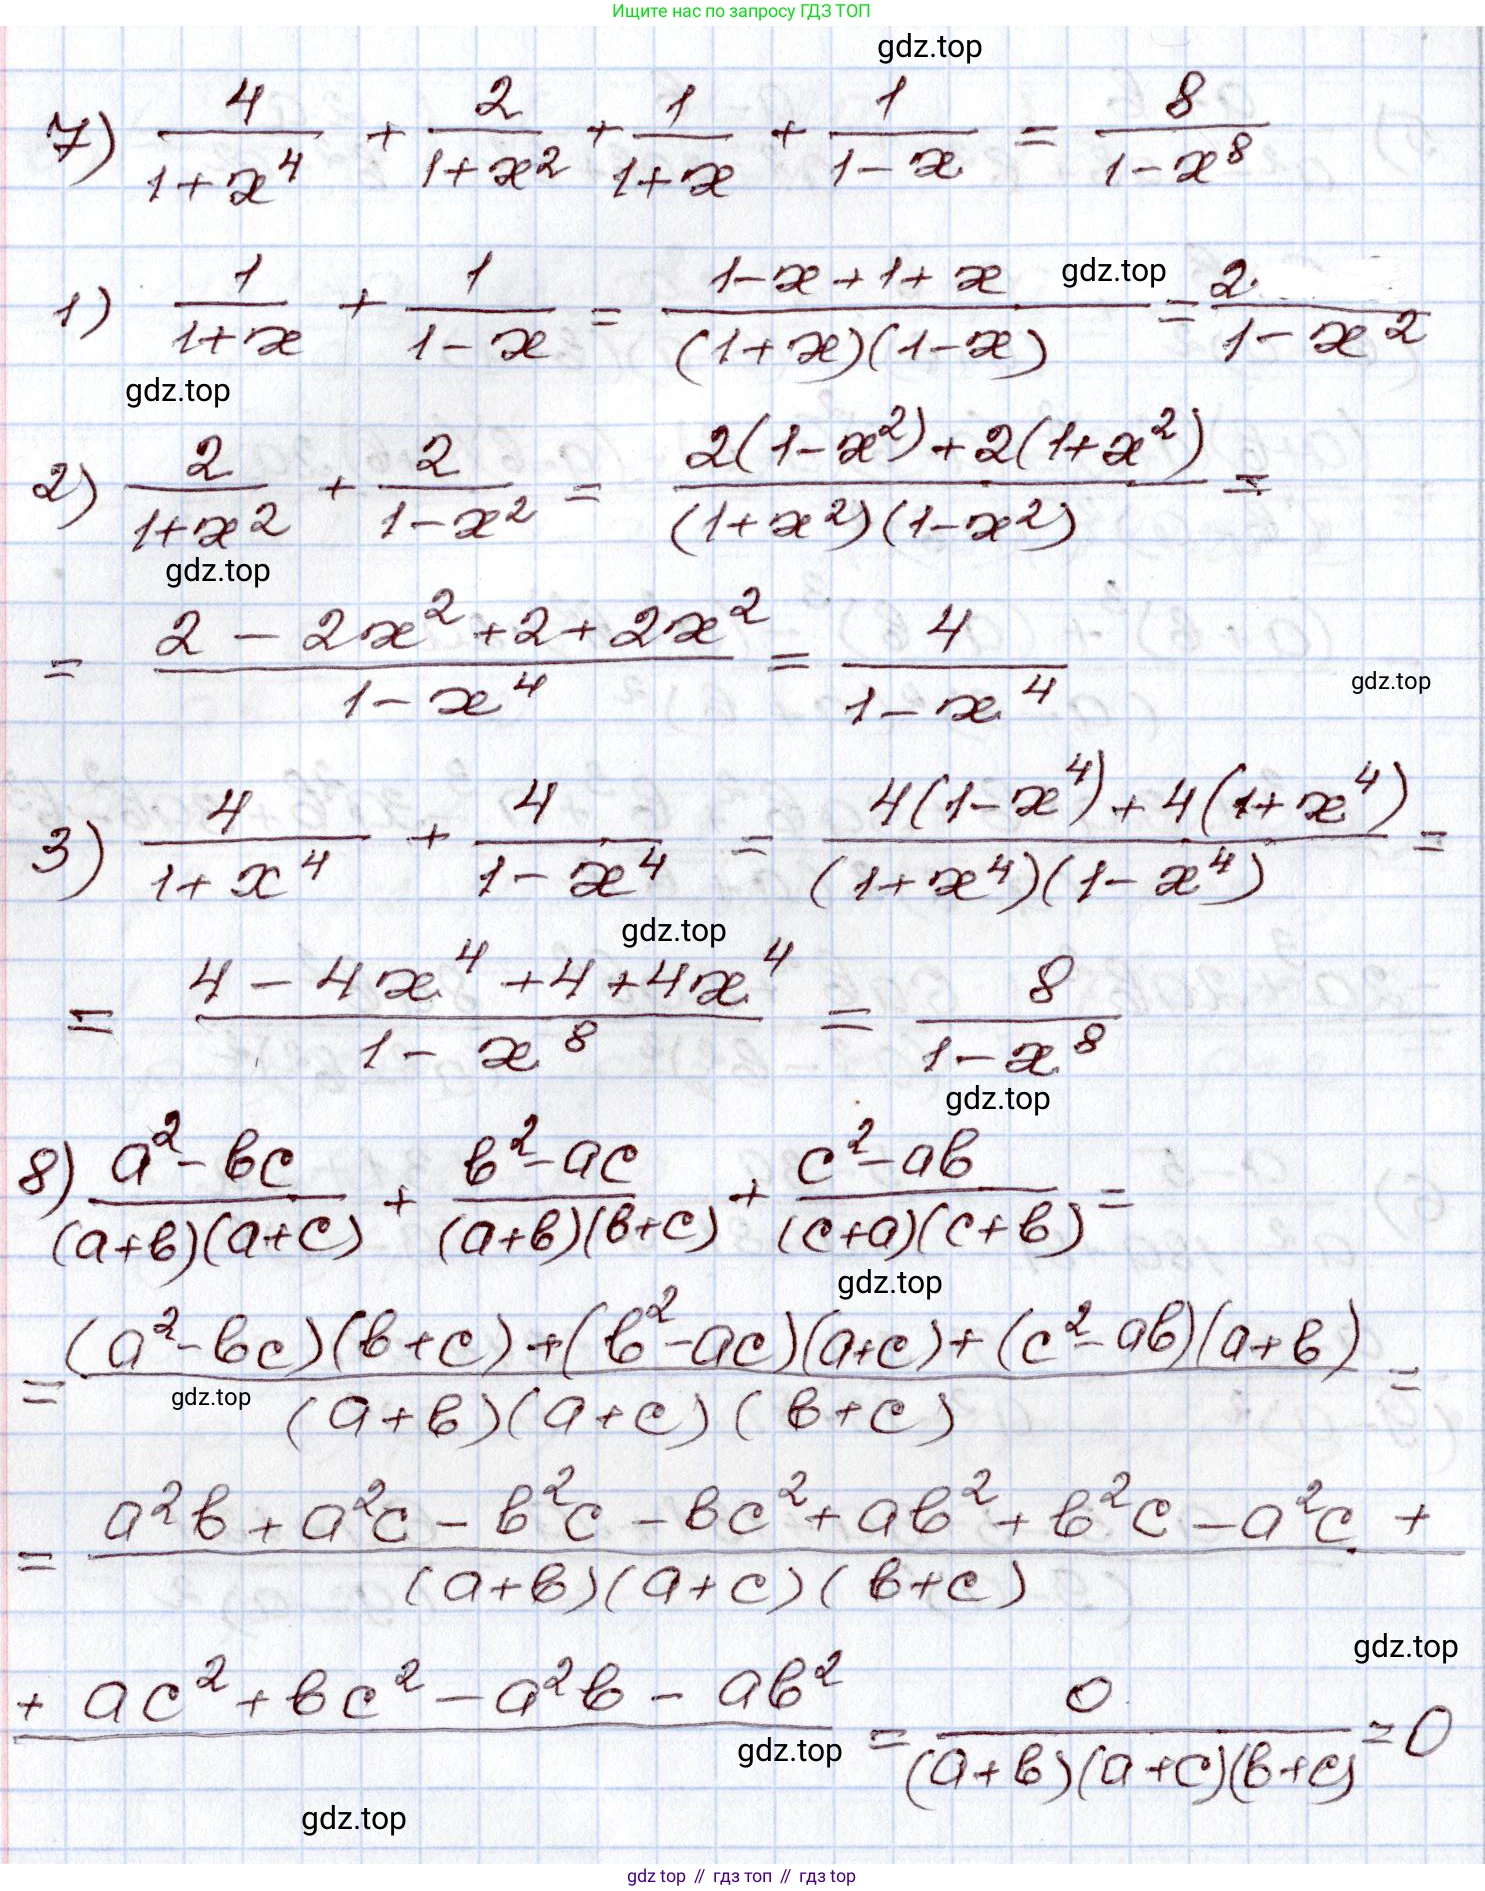 Ищите нас по запросу ГДЗ ТОП
gdz.top
7) 4/(1+x^4) + 2/(1+x^2) + 1/(1+x) + 1/(1-x) = 8/(1-x^8)
1) 1/(1+x) + 1/(1-x) = (1-x+1+x)/((1+x)(1-x)) = 2/(1-x^2)
gdz.top
gdz.top
2) 2/(1+x^2) + 2/(1-x^2) = (2(1-x^2)+2(1+x^2))/((1+x^2)(1-x^2)) =
gdz.top
= (2-2x^2+2+2x^2)/(1-x^4) = 4/(1-x^4)
gdz.top
3) 4/(1+x^4) + 4/(1-x^4) = (4(1-x^4)+4(1+x^4))/((1+x^4)(1-x^4)) =
gdz.top
= (4-4x^4+4+4x^4)/(1-x^8) = 8/(1-x^8)
gdz.top
8) (a^2-bc)/((a+b)(a+c)) + (b^2-ac)/((a+b)(b+c)) + (c^2-ab)/((c+a)(c+b)) =
gdz.top
= ((a^2-bc)(b+c)+(b^2-ac)(a+c)+(c^2-ab)(a+b))/((a+b)(a+c)(b+c)) =
gdz.top
= (a^2b+a^2c-b^2c-bc^2+ab^2+b^2c-a^2c+)/((a+b)(a+c)(b+c))
gdz.top
+ac^2+bc^2-a^2b-ab^2 = 0/((a+b)(a+c)(b+c)) = 0
gdz.top
gdz.top
gdz top // гдз топ // gdz.top